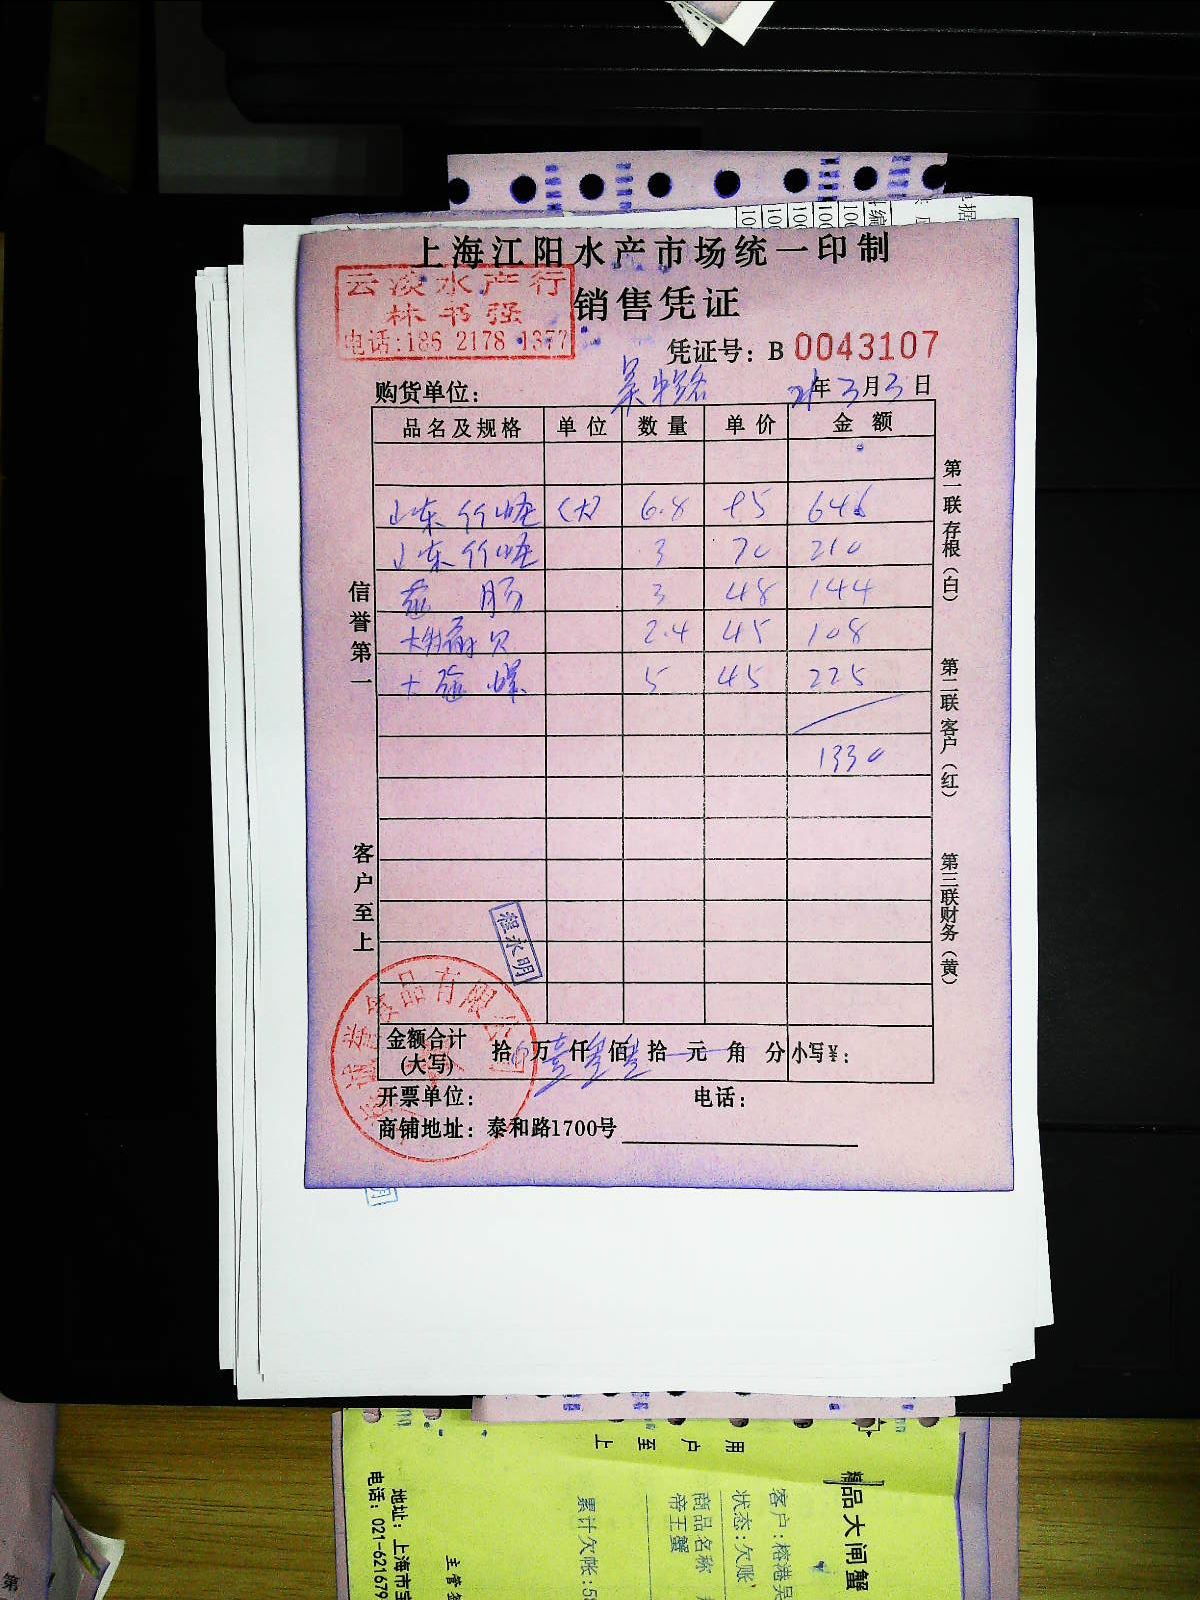 上海江阳水产市场统一印制
云淡水产行
林书强
电话:186 2178 1377
销售凭证
凭证号: B 0043107
购货单位: 吴中路 21年3月3日
品名及规格 单位 数量 单价 金额
山东竹蛏 (大) 6.8 95 646
山东竹蛏 3 70 210
3 48 144
2.4 45 108
5 45 225
1330
信誉第一
客户至上
第一联存根(白)
第二联客户(红)
第三联财务(黄)
程永明
金额合计
(大写) 拾 万 仟 佰 拾 元 角 分 小写¥:
开票单位: 电话:
商铺地址: 泰和路1700号
用户至上
精品大闸蟹
客户:榕港吴
状态:欠账
商品名称
帝王蟹
累计欠帐:5
主管
地址: 上海市宝
电话: 021-621679